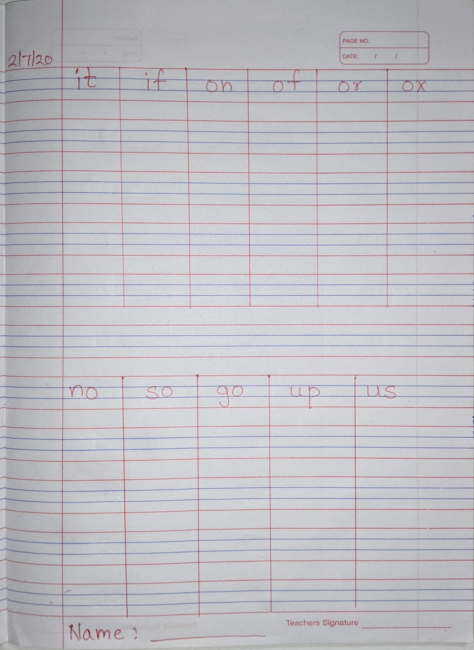 PAGE NO.
DATE: / /
2/7/20
it if on of or ox
no so go up us
Teachers Signature
Name :